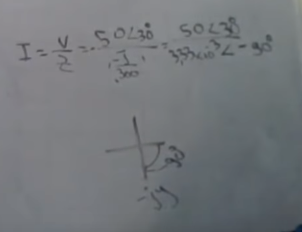 I = V/Z = 50∠30° / (-j/300) = 50∠30° / 3,33x10⁻³∠-90°
90
-jy